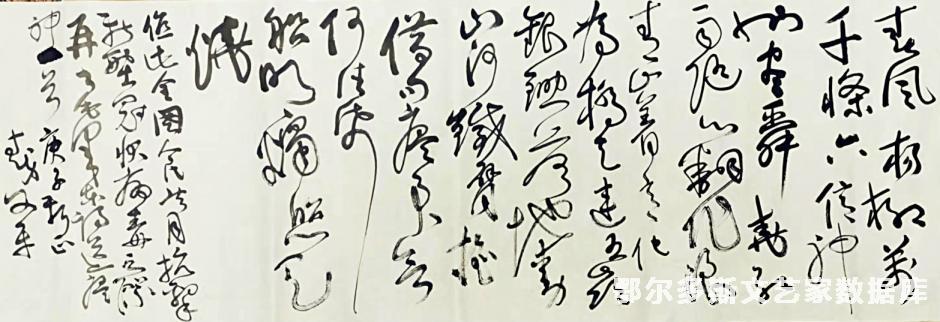 春风杨柳万
千条六亿神
州尽舜尧红
雨随心翻作浪
青山着意化
为桥天连五岭
银锄落地动
山河铁臂摇
借问瘟君欲
何往纸
船明烛照天
烧
值此全国人民
新型冠状病毒之际
再书毛主席诗送瘟
神一首 庚子
鄂尔多斯文艺家数据库